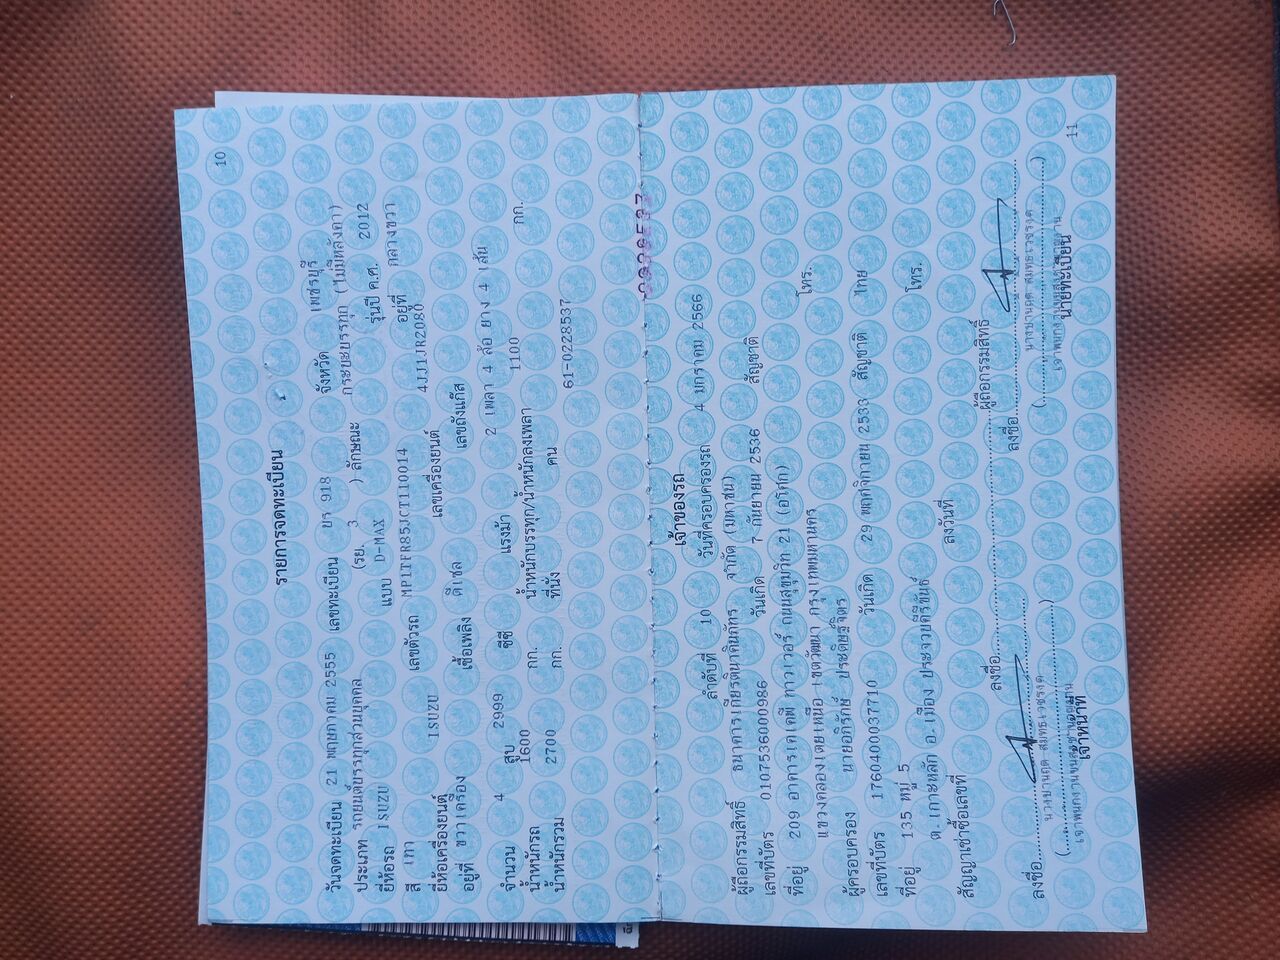 10
รายการจดทะเบียน
วันจดทะเบียน 21 พฤษภาคม 2555 เลขทะเบียน บร 918 จังหวัด เพชรบุรี
ประเภท รถยนต์บรรทุกส่วนบุคคล (รย. 3 ) ลักษณะ กระบะบรรทุก (ไม่มีหลังคา)
ยี่ห้อรถ ISUZU แบบ D-MAX รุ่นปี ค.ศ. 2012
สี เทา เลขตัวรถ MP1TFR85JCT110014 อยู่ที่ กลางขวา
ยี่ห้อเครื่องยนต์ ISUZU เลขเครื่องยนต์ 4JJ1JR2080
อยู่ที่ ขวาเครื่อง เชื้อเพลิง ดีเซล เลขถังแก๊ส
จำนวน 4 สูบ 2999 ซีซี แรงม้า 2 เพลา 4 ล้อ ยาง 4 เส้น
น้ำหนักรถ 1600 กก. น้ำหนักบรรทุก/น้ำหนักลงเพลา 1100 กก.
น้ำหนักรวม 2700 กก. ที่นั่ง คน
61-0228537
เจ้าของรถ
ลำดับที่ 10 วันที่ครอบครองรถ 4 มกราคม 2566
ผู้ถือกรรมสิทธิ์ ธนาคารเกียรตินาคินภัทร จำกัด (มหาชน)
เลขที่บัตร 0107536000986 วันเกิด 7 กันยายน 2536 สัญชาติ
ที่อยู่ 209 อาคารเคเคพี ทาวเวอร์ ถนนสุขุมวิท 21 (อโศก)
แขวงคลองเตยเหนือ เขตวัฒนา กรุงเทพมหานคร โทร.
ผู้ครอบครอง นายอภิรักษ์ ประดิษฐ์จิตร
เลขที่บัตร 1760400037710 วันเกิด 29 พฤศจิกายน 2533 สัญชาติ ไทย
ที่อยู่ 135 หมู่ 5
ต.เกาะหลัก อ.เมือง ประจวบคีรีขันธ์ โทร.
สัญญาเช่าซื้อเลขที่ ลงวันที่
ลงชื่อ ผู้ถือกรรมสิทธิ์
ลงชื่อ ลงชื่อ
เจ้าหน้าที่ นายทะเบียน
11